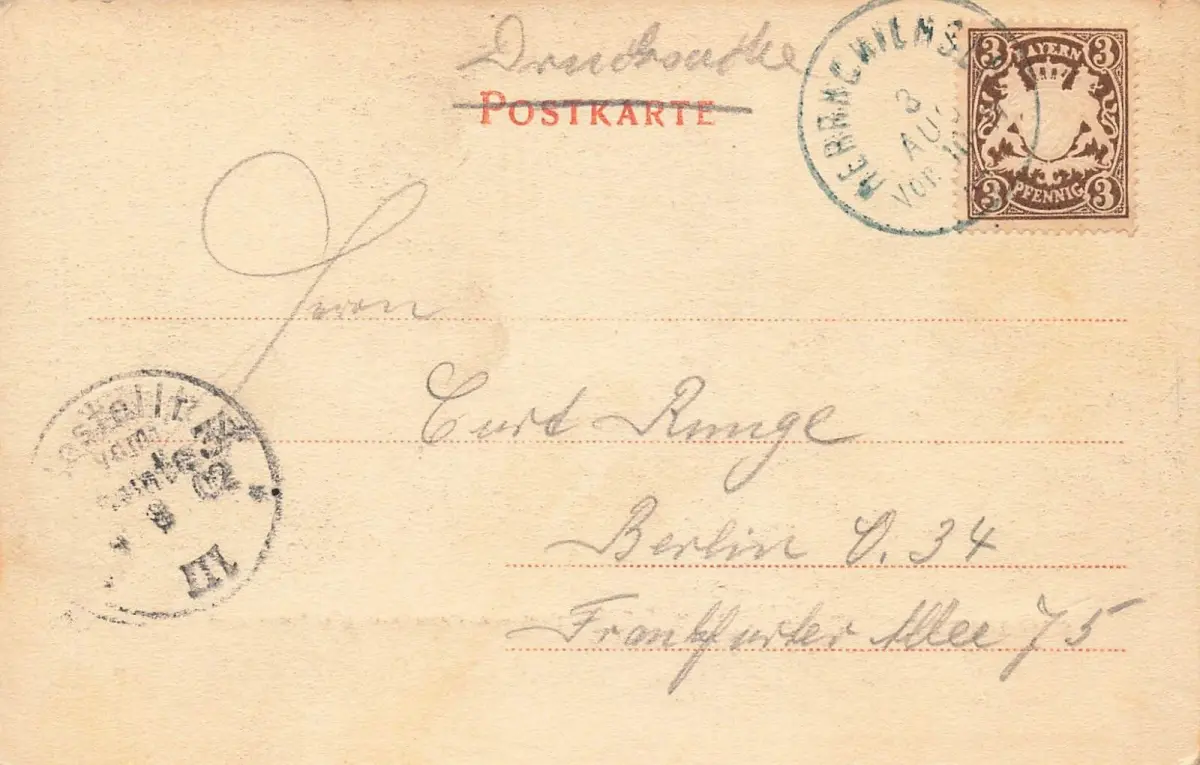 Drucksache
POSTKARTE
HERRNCHIEMSEE
3
AUG
VOR. 10
3 BAYERN 3
3 PFENNIG 3
Herrn
Curt Runge
Berlin O. 34
Frankfurter Allee 75
Bestellt
vom
Postamte 34
8 02
III